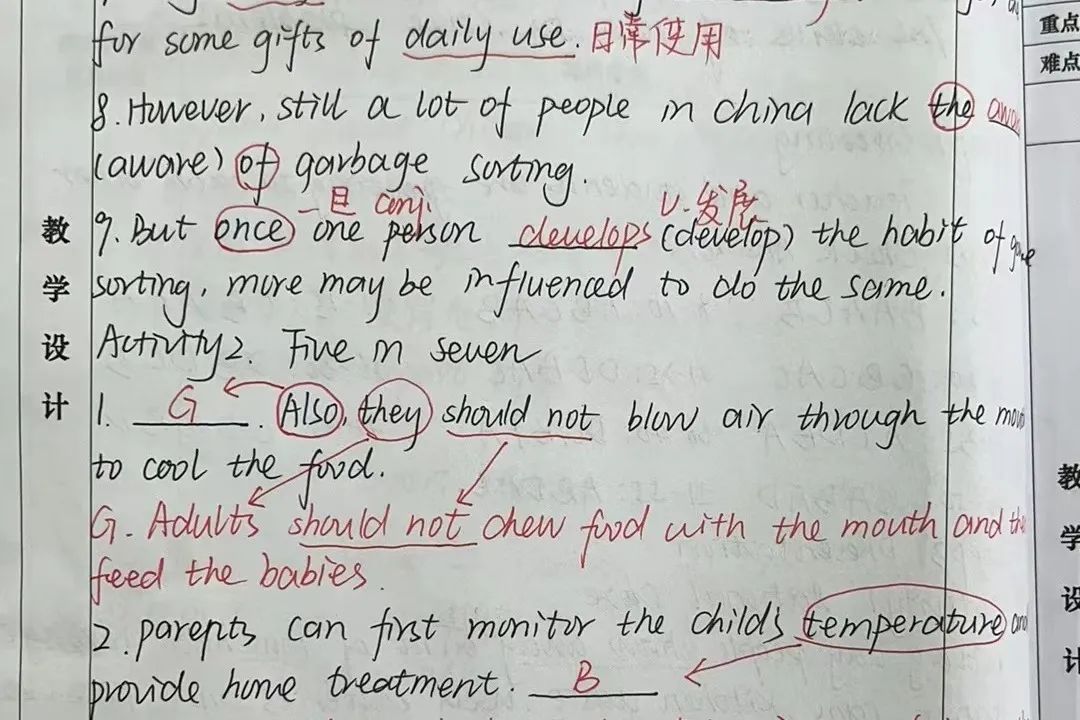 for some gifts of daily use. 日常使用
8. However, still a lot of people in china lack the
(aware) of garbage sorting.
一旦 conj. v. 发展
9. But once one person develops (develop) the habit of
sorting, more may be influenced to do the same.
Activity 2. Five in seven
1. G. Also, they should not blow air through the
to cool the food.
G. Adults should not chew food with the mouth and
feed the babies.
2. parents can first monitor the child's temperature and
provide home treatment. B
教学设计
重点
难点
教学设计